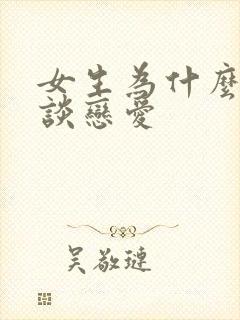 女生為什麼
談戀愛
吳敬璉